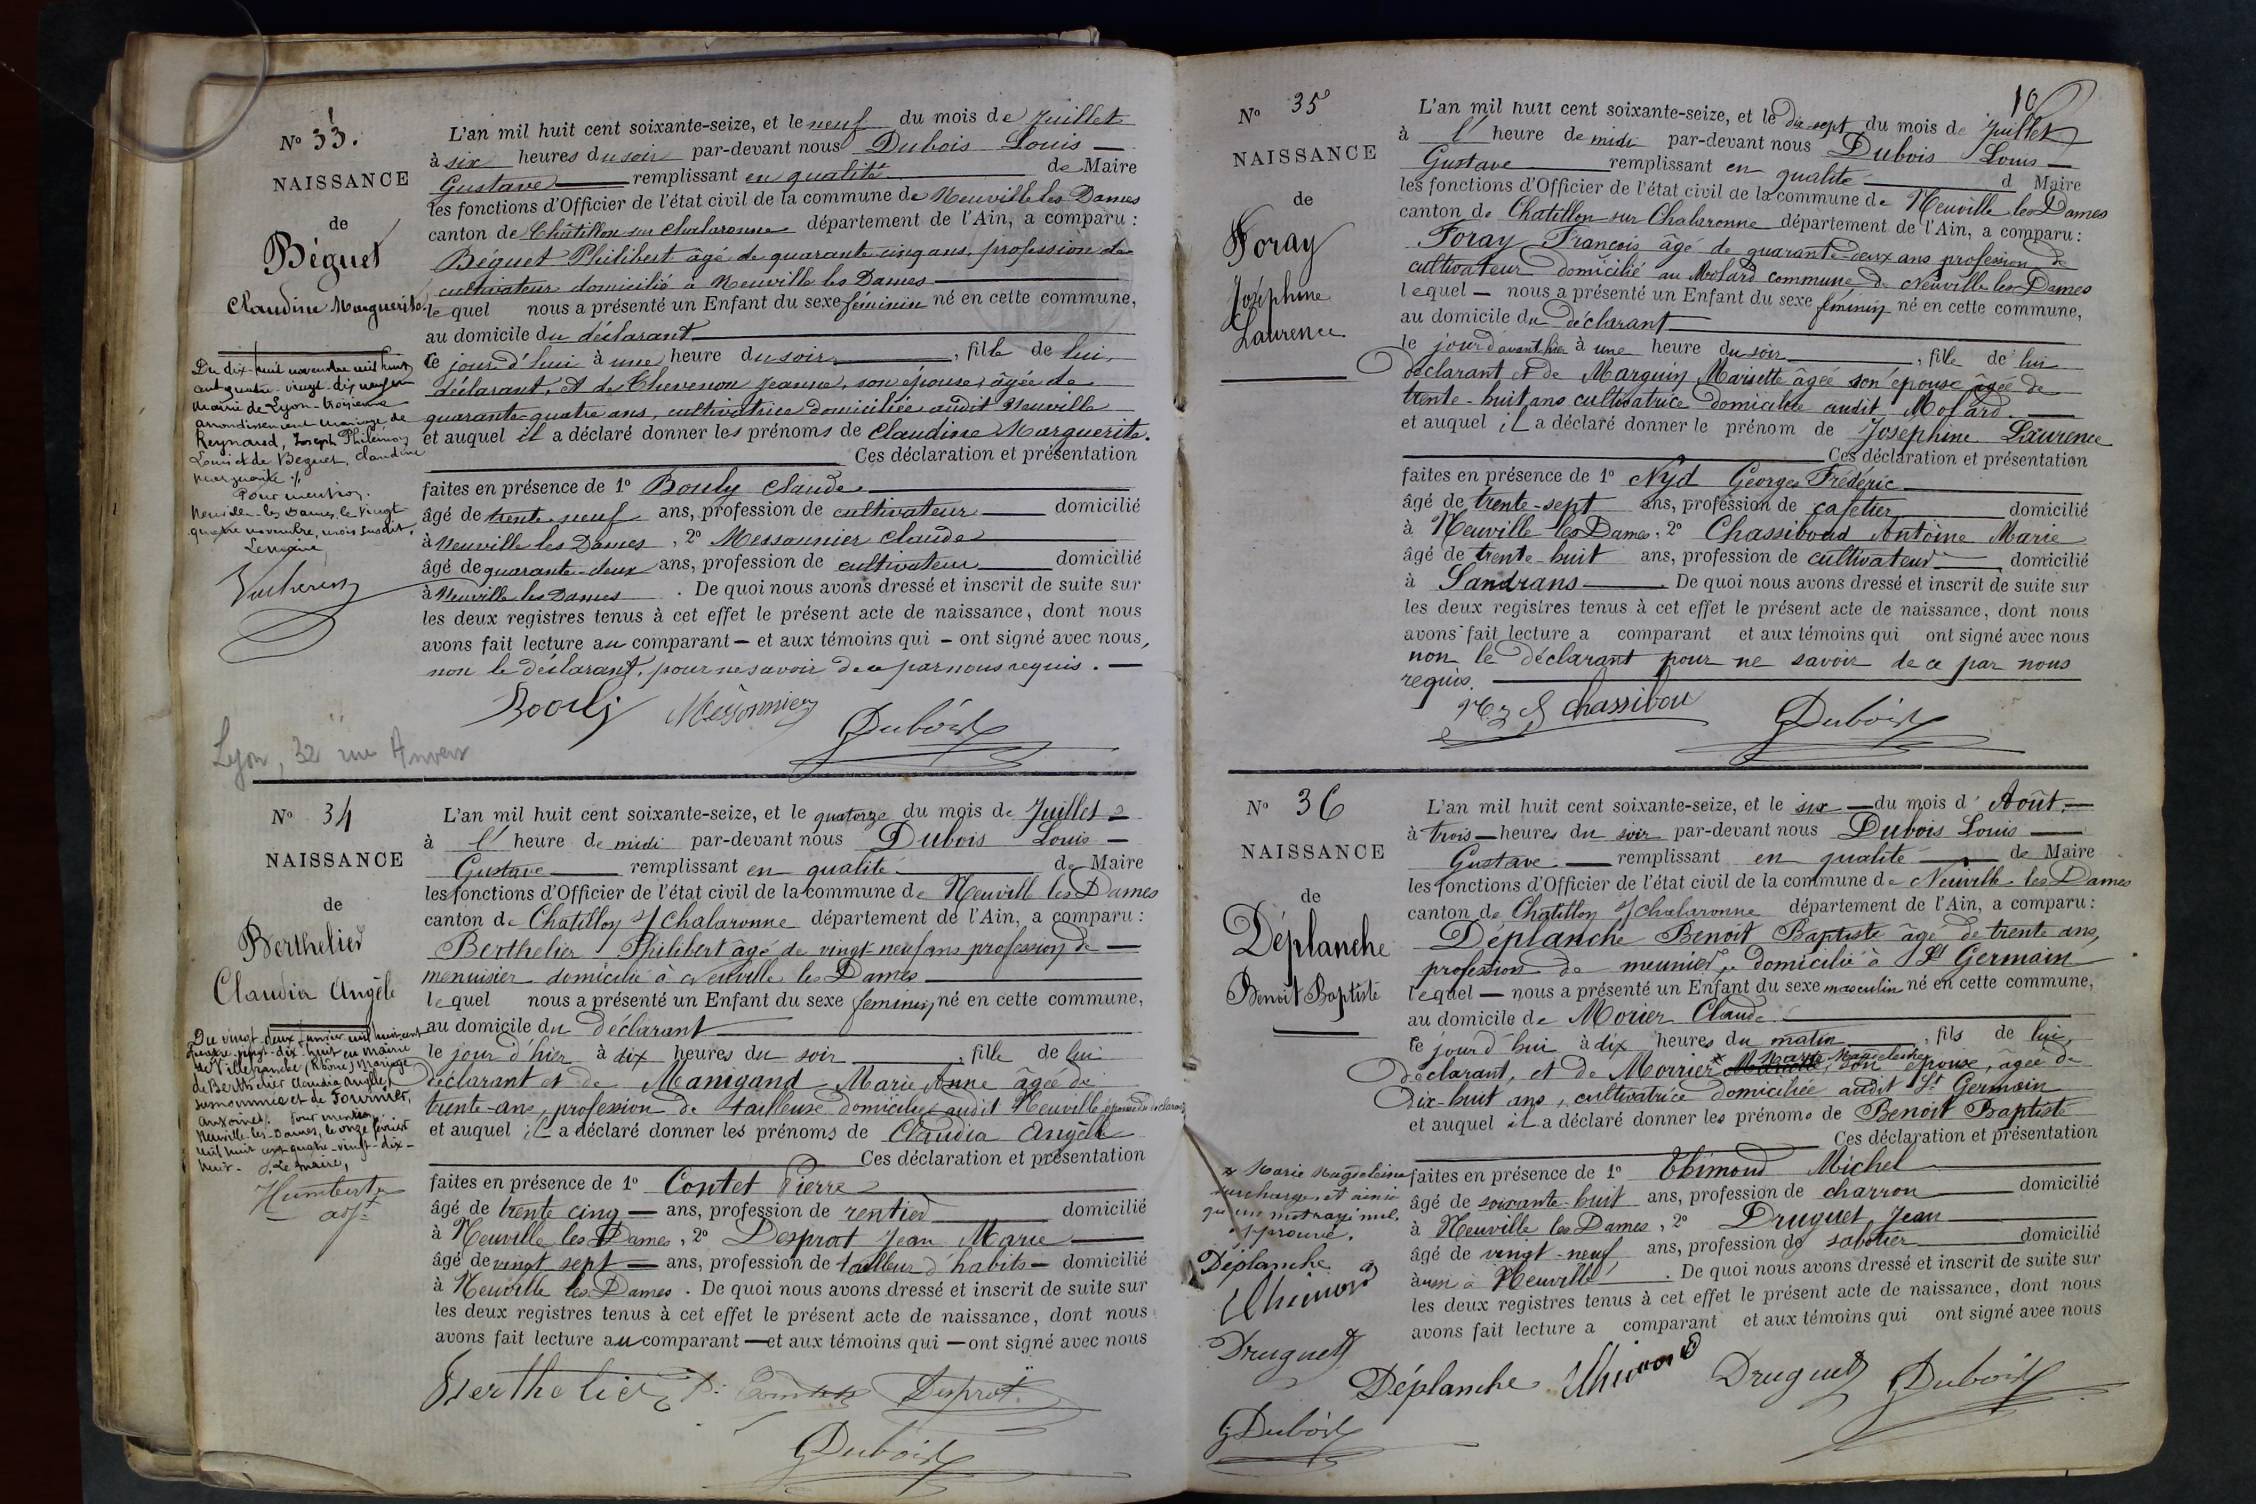 No 33.
NAISSANCE
de
Béguet
Claudine Marguerite
L'an mil huit cent soixante-seize, et le neuf du mois de Juillet
à six heures du soir par-devant nous Dubois Louis
Gustave remplissant en qualité de Maire
les fonctions d'Officier de l'état civil de la commune de Neuville les Dames
canton de Châtillon sur Chalaronne département de l'Ain, a comparu :
Béguet Philibert âgé de quarante cinq ans, profession de
cultivateur domicilié à Neuville les Dames
lequel nous a présenté un Enfant du sexe féminin né en cette commune,
au domicile du déclarant
le jour d'hui à une heure du soir, fille de lui,
déclarant, et de Chevenon Jeanne, son épouse, âgée de
quarante-quatre ans, cultivatrice domiciliée audit Neuville
et auquel il a déclaré donner les prénoms de Claudine Marguerite.
Ces déclaration et présentation
faites en présence de 1º Bouly Claude
âgé de trente neuf ans, profession de cultivateur domicilié
à Neuville les Dames, 2º Messonnier Claude
âgé de quarante-deux ans, profession de cultivateur domicilié
à Neuville les Dames. De quoi nous avons dressé et inscrit de suite sur
les deux registres tenus à cet effet le présent acte de naissance, dont nous
avons fait lecture au comparant – et aux témoins qui – ont signé avec nous,
non le déclarant, pour ne savoir de ce par nous requis. —
Du dix-huit novembre mil huit
cent quatre-vingt-dix neuf en
mairie de Lyon-troisième
arrondissement mariage de
Reynaud, Joseph Philémon
Louis et de Béguet, Claudine
Marguerite ./.
Pour mention.
Neuville-les-Dames, le vingt
quatre novembre, mois susdit.
Le maire,
Bouly
Dubois
Lyon, 32 rue Anvers
No 34
NAISSANCE
de
Berthelier
Claudia Angèle
L'an mil huit cent soixante-seize, et le quatorze du mois de Juillet
à l' heure de midi par-devant nous Dubois Louis —
Gustave remplissant en qualité de Maire
les fonctions d'Officier de l'état civil de la commune de Neuville les Dames
canton de Chatillon s/ Chalaronne département de l'Ain, a comparu :
Berthelier Philibert âgé de vingt-neuf ans profession de —
menuisier domicilié à Neuville les Dames
lequel nous a présenté un Enfant du sexe feminin né en cette commune,
au domicile du déclarant
le jour d'hier à dix heures du soir, fille de lui
déclarant et de Manigand Marie Anne âgée de
trente-ans, profession de tailleuse domiciliée audit Neuville épouse du déclarant
et auquel il a déclaré donner les prénoms de Claudia Angèle
Ces déclaration et présentation
faites en présence de 1º Contet Pierre
âgé de trente cinq — ans, profession de rentier domicilié
à Neuville les Dames, 2º Desprat Jean Marie
âgé de vingt sept — ans, profession de tailleur d'habits — domicilié
à Neuville les Dames. De quoi nous avons dressé et inscrit de suite sur
les deux registres tenus à cet effet le présent acte de naissance, dont nous
avons fait lecture au comparant — et aux témoins qui — ont signé avec nous
Du vingt-deux janvier mil huit cent
quatre-vingt-dix-huit en mairie
de Villefranche (Rhône) Mariage
de Berthelier Claudia Angèle,
surnommée et de Fournier,
Antoine. Pour mention.
Neuville-les-Dames, le onze février
mil huit cent quatre-vingt-dix-
huit. Le maire,
Humbert
adjt
Berthelier Desprat
Dubois
10
No 35
NAISSANCE
de
Foray
Joséphine
Laurence
L'an mil huit cent soixante-seize, et le dix sept du mois de Juillet
à l' heure de midi par-devant nous Dubois Louis —
Gustave remplissant en qualité d Maire
les fonctions d'Officier de l'état civil de la commune de Neuville les Dames
canton de Chatillon sur Chalaronne département de l'Ain, a comparu :
Foray François âgé de quarante-deux ans profession de
cultivateur domicilié au Molard commune de Neuville les Dames
lequel — nous a présenté un Enfant du sexe féminin né en cette commune,
au domicile du déclarant
le jour d'avant hier à une heure du soir, fille de lui
déclarant et de Marguin Mariette âgée son épouse âgée de
trente-huit ans cultivatrice domiciliée audit Molard. —
et auquel il a déclaré donner le prénom de Joséphine Laurence
Ces déclaration et présentation
faites en présence de 1º Nyd Georges Frédéric
âgé de trente-sept ans, profession de cafetier domicilié
à Neuville les Dames, 2º Chassiboud Antoine Marie
âgé de trente huit ans, profession de cultivateur domicilié
à Sandrans. De quoi nous avons dressé et inscrit de suite sur
les deux registres tenus à cet effet le présent acte de naissance, dont nous
avons fait lecture a comparant et aux témoins qui ont signé avec nous
non le déclarant pour ne savoir de ce par nous
requis.
chassibou Dubois
No 36
NAISSANCE
de
Déplanche
Benoît Baptiste
L'an mil huit cent soixante-seize, et le six — du mois d' Août —
à trois — heures du soir par-devant nous Dubois Louis
Gustave — remplissant en qualité de Maire
les fonctions d'Officier de l'état civil de la commune de Neuville les Dames
canton de Chatillon s/ chalaronne département de l'Ain, a comparu :
Déplanche Benoit Baptiste âgé de trente ans,
profession de meunier, domicilié à St Germain
lequel — nous a présenté un Enfant du sexe masculin né en cette commune,
au domicile de Morier Claude
le jour d'hui à dix heures du matin, fils de lui,
déclarant, et de Morrier Marie Magdeleine, son épouse, âgée de
dix-huit ans, cultivatrice domiciliée audit St Germain
et auquel il a déclaré donner les prénoms de Benoît Baptiste
Ces déclaration et présentation
faites en présence de 1º Thimond Michel
âgé de soixante-huit ans, profession de charron domicilié
à Neuville les Dames, 2º Druguet Jean
âgé de vingt-neuf ans, profession de sabotier domicilié
aussi à Neuville. De quoi nous avons dressé et inscrit de suite sur
les deux registres tenus à cet effet le présent acte de naissance, dont nous
avons fait lecture a comparant et aux témoins qui ont signé avec nous
x Marie Magdeleine
surcharge, et ainsi
qu'un mot rayé nul,
approuvé.
Déplanche
Thimond
Druguet
Dubois
Déplanche Thimond Druguet Dubois